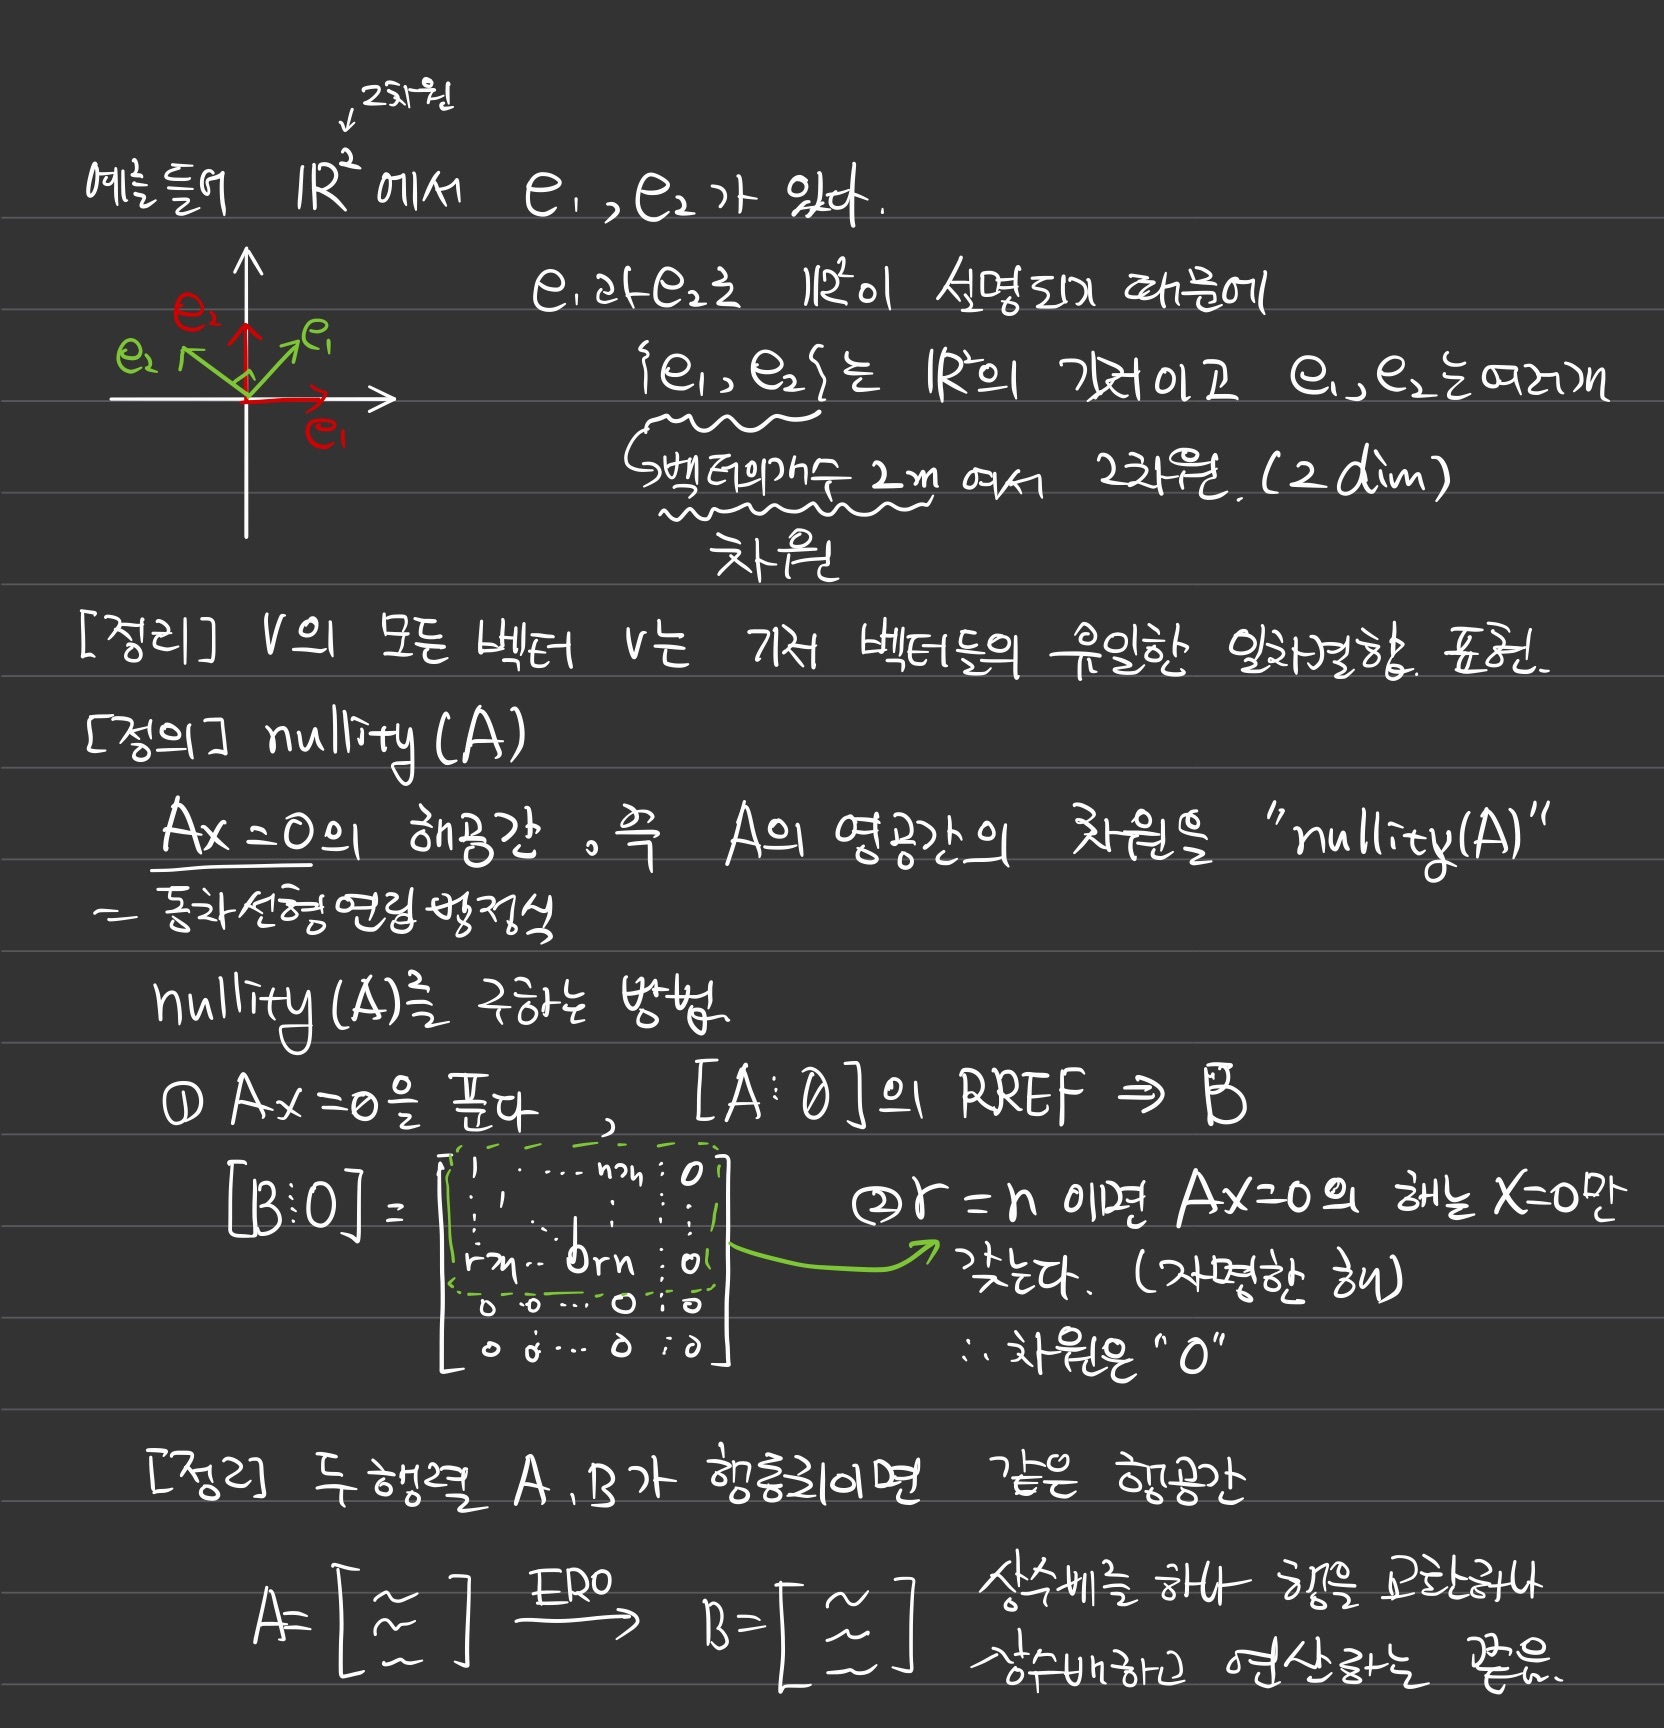 2차원
예를들어 ℝ²에서 e₁, e₂가 있다.
e₁과e₂로 ℝ²이 설명되기 때문에
e₂ e₂ e₁
e₁
{e₁, e₂}는 ℝ²의 기저이고 e₁, e₂는여러개
↳벡터의개수 2개 여서 2차원. (2 dim)
차원
[정리] V의 모든 벡터 v는 기저 벡터들의 유일한 일차결합. 표현.
[정의] nullity(A)
Ax=0의 해공간. 즉 A의 영공간의 차원을 "nullity(A)"
= 동차선형연립방정식
nullity(A)를 구하는 방법
① Ax=0을 푼다, [A⋮0]의 RREF ⇒ B
[B⋮0] =
1 · ···· ⋮ 0
1 ⋮ ⋮ ⋮
·· rn ⋮ 0
0 0 ··· 0 ⋮ 0
0 0 ··· 0 ⋮ 0
② r = n 이면 Ax=0의 해는 X=0만
갖는다. (자명한 해)
∴ 차원은 "0"
[정리] 두 행렬 A, B가 행동치이면 같은 행공간
A= [ ] ERO → B= [ ]
상수배를 하나 행을 교환하나
상수배하고 연산하는 같음.